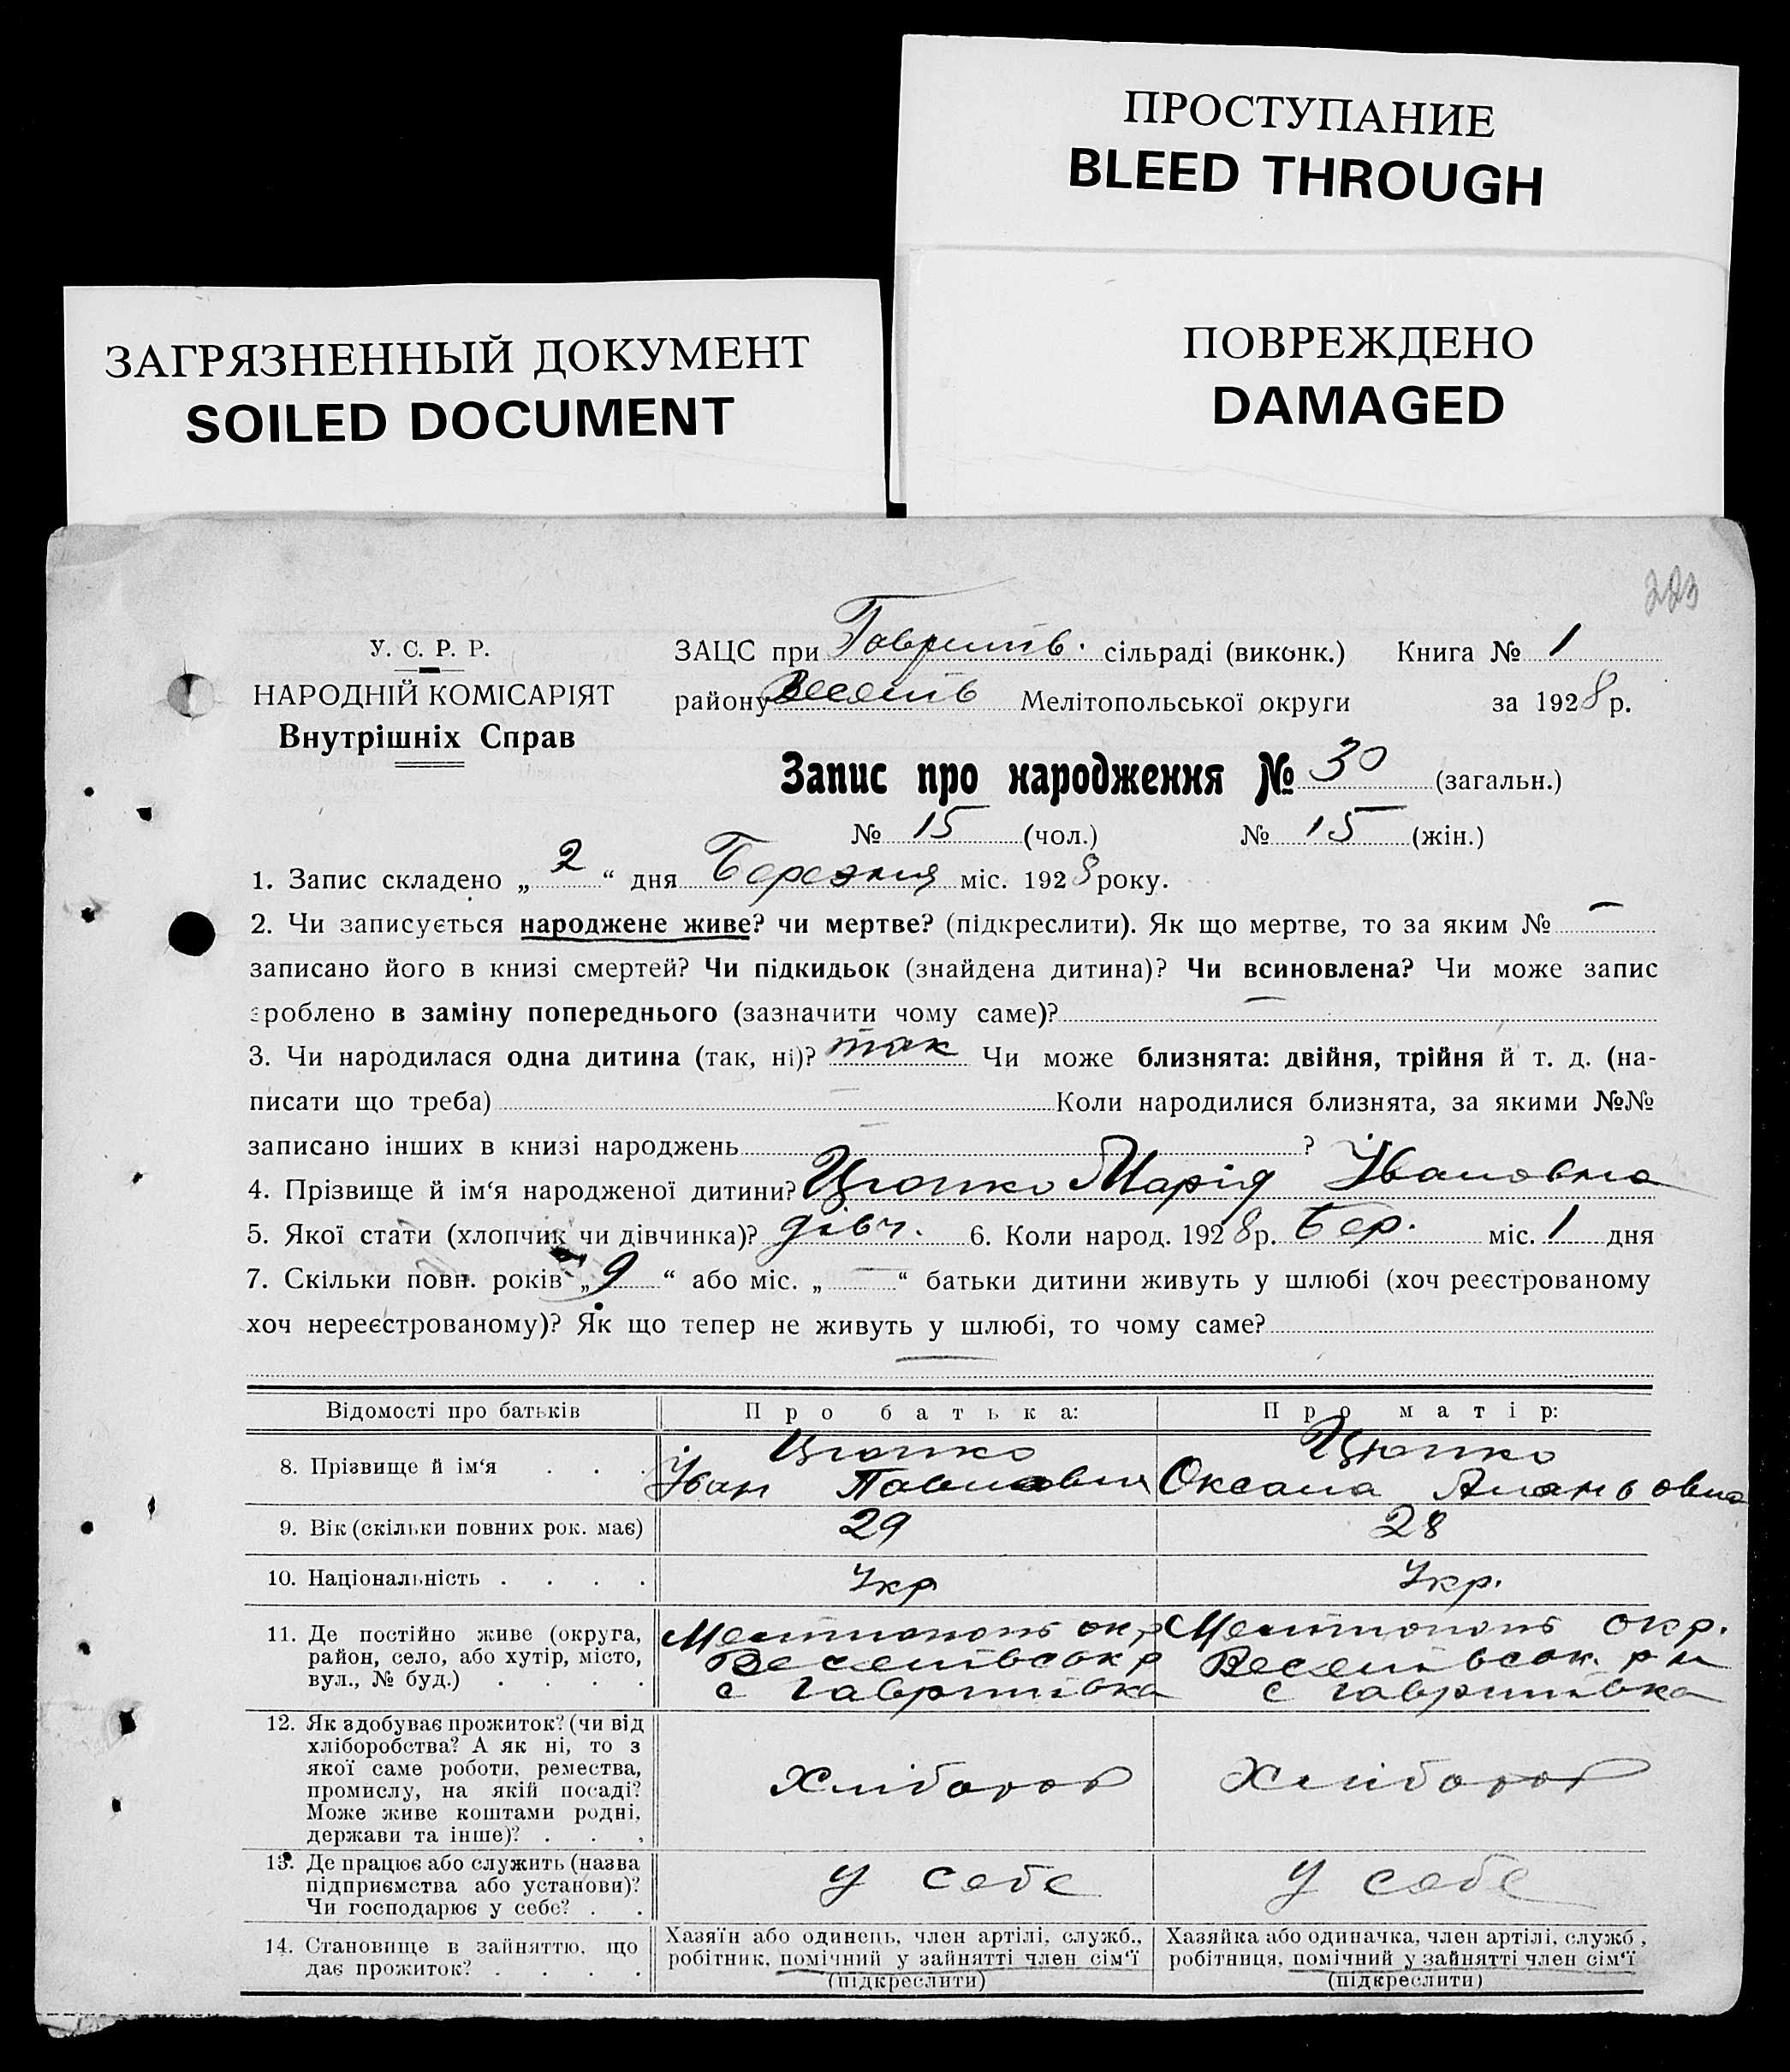 ПРОСТУПАНИЕ
BLEED THROUGH
ЗАГРЯЗНЕННЫЙ ДОКУМЕНТ
SOILED DOCUMENT
ПОВРЕЖДЕНО
DAMAGED
223
У. С. Р. Р.
НАРОДНІЙ КОМІСАРІЯТ
Внутрішніх Справ
ЗАЦС при Гаврилів. сільраді (виконк.) Книга № 1
району Веселів Мелітопольської округи за 1928 р.
Запис про народження № 30 (загальн.)
№ 15 (чол.) № 15 (жін.)
1. Запис складено „ 2 “ дня Березня міс. 1928 року.
2. Чи записується народжене живе? чи мертве? (підкреслити). Як що мертве, то за яким № —
записано його в книзі смертей? Чи підкидьок (знайдена дитина)? Чи всиновлена? Чи може запис
зроблено в заміну попереднього (зазначити чому саме)? —
3. Чи народилася одна дитина (так, ні)? так Чи може близнята: двійня, трійня й т. д. (на-
писати що треба) — Коли народилися близнята, за якими №№
записано інших в книзі народжень — ?
4. Прізвище й ім‘я народженої дитини? Цюпко Марія Івановна
5. Якої стати (хлопчик чи дівчинка)? дівч. 6. Коли народ. 1928 р. Бер. міс. 1 дня
7. Скільки повн. років „ 9 “ або міс. „ — “ батьки дитини живуть у шлюбі (хоч реєстрованому
хоч нереєстрованому)? Як що тепер не живуть у шлюбі, то чому саме?
—
Відомості про батьків Про батька: Про матір:
8. Прізвище й ім‘я . . . Цюпко Іван Павлович Цюпко Оксана
9. Вік (скільки повних рок. має) 29 28
10. Національність . . . . Укр Укр.
11. Де постійно живе (округа,
район, село, або хутір, місто,
вул., № буд.) . . . .
Мелитополь окр
Веселівськ р
с Гаврилівка
Мелитополь окр.
Веселівськ. р н
с Гаврилівка
12. Як здобуває прожиток? (чи від
хліборобства? А як ні, то з
якої саме роботи, ремества,
промислу, на якій посаді?
Може живе коштами родні,
держави та інше)? . . .
Хлібороб
Хлібороб
13. Де працює або служить (назва
підприємства або установи)?
Чи господарює у себе? . .
У себе
У себе
14. Становище в зайняттю, що
дає прожиток? . . . .
Хазяїн або одинець, член артілі, служб.,
робітник, помічний у зайнятті член сім‘ї
(підкреслити)
Хазяйка або одиначка, член артілі, служб ,
робітниця, помічний у зайнятті член сім‘ї
(підкреслити)